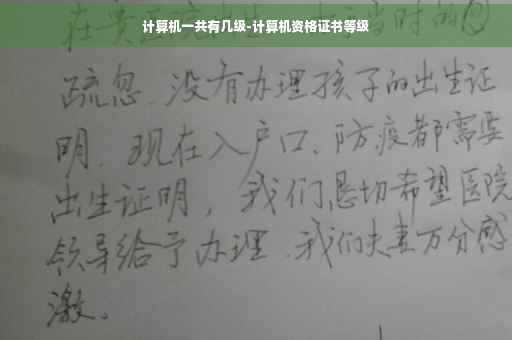 计算机一共有几级-计算机资格证书等级
在贵 当时的
疏忽、没有办理孩子的出生证
明、现在入户口、防疫都需要
出生证明，我们恳切希望医院
领导给予办理、我们夫妻万分感
激。